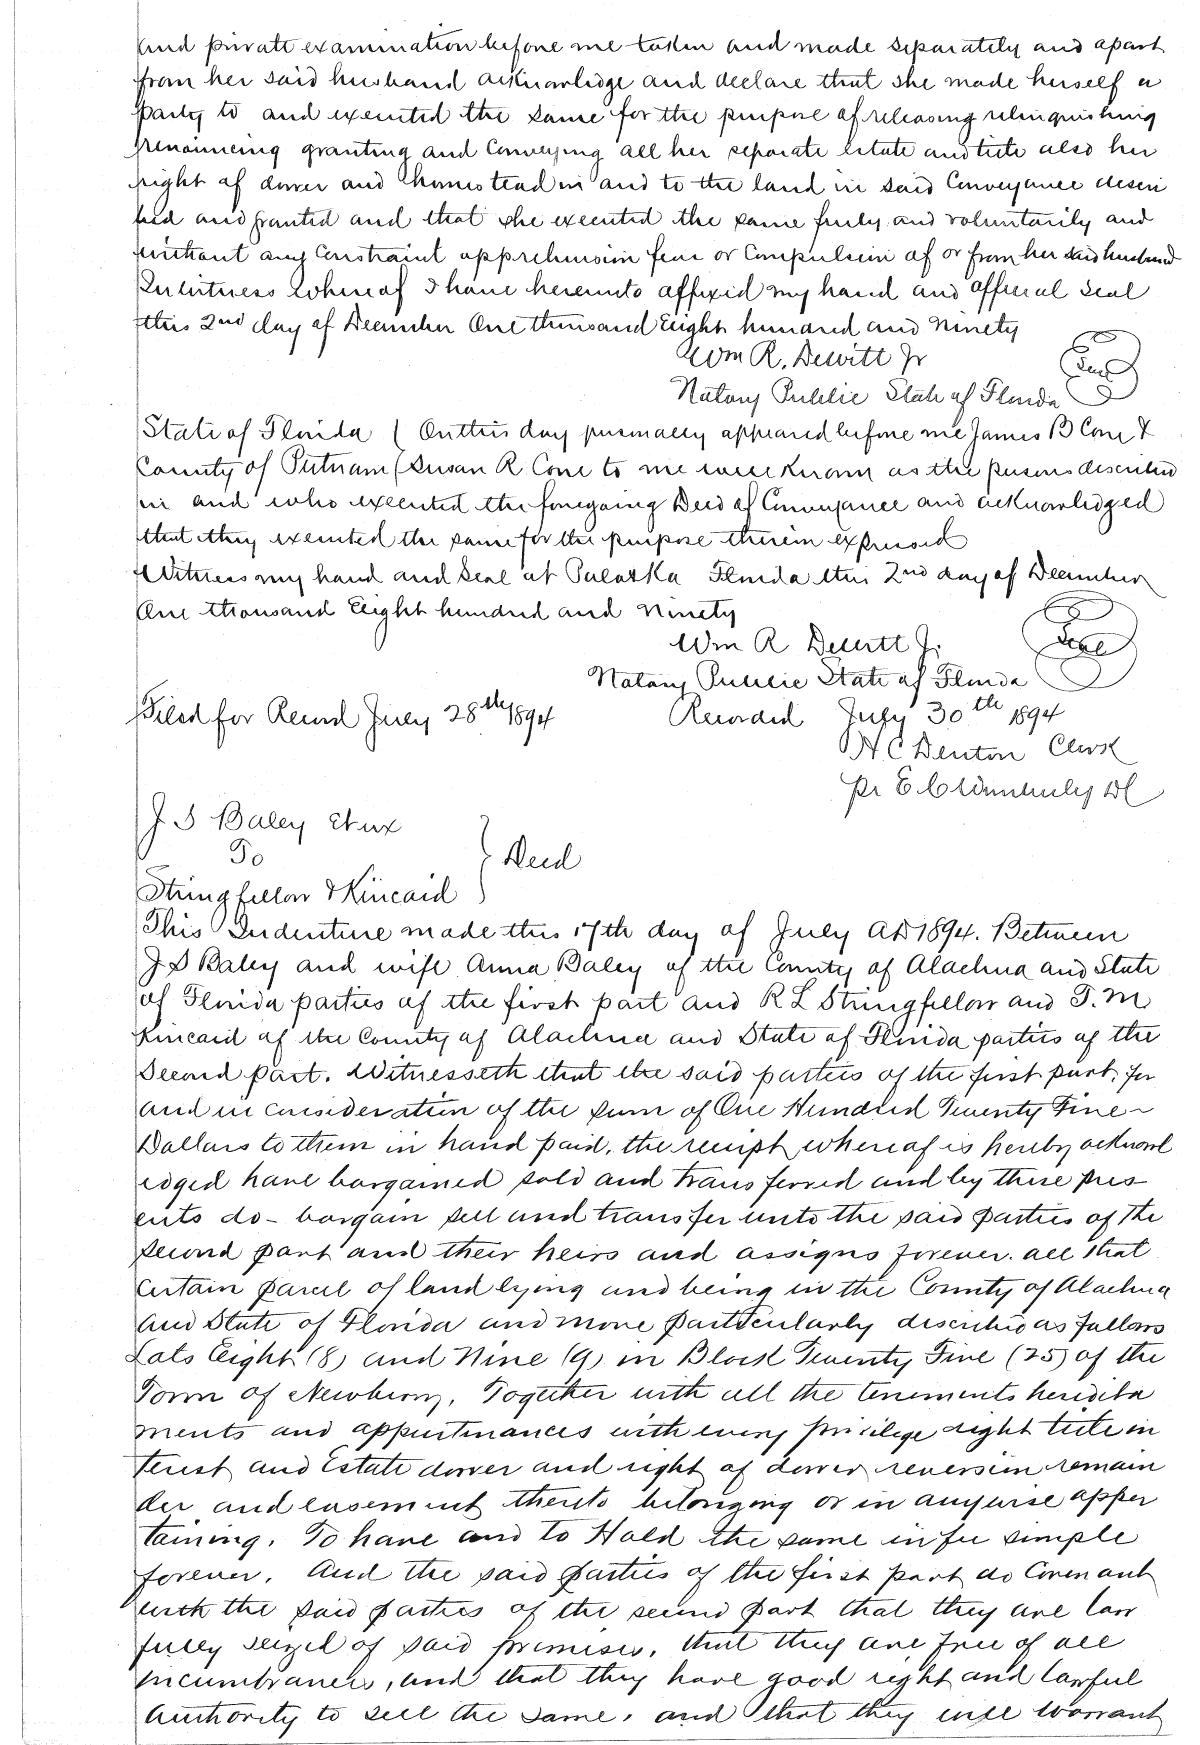 and private examination before me taken and made separately and apart
from her said husband acknowledge and declare that she made herself a
party to and executed the same for the purpose of releasing relinquishing
renouncing granting and Conveying all her separate Estate and title also her
right of dower and homestead in and to the land in said Conveyance descri
bed and granted and that she executed the same freely and voluntarily and
without any Constraint apprehension fear or Compulsion of or from her said husband
In witness Whereof I have hereunto affixed my hand and official seal
this 2nd day of December One thousand Eight hundred and Ninety
Wm R. Dewitt Jr
Seal
Notary Public State of Florida
State of Florida ( On this day personally appeared before me James B Cone &
County of Putnam ( Susan R Cone to me well Known as the persons described
in and who executed the foregoing Deed of Conveyance and acknowledged
that they executed the same for the purpose therein expressed
Witness my hand and seal at Palatka Florida this 2nd day of December
One thousand Eight hundred and Ninety
Wm R Dewitt Jr.
Seal
Notary Public State of Florida
Filed for Record July 28th 1894 Recorded July 30th 1894
H C Denton Clerk
pr E C DC
J S Baley et ux
To } Deed
Stringfellow & Kincaid
This Indenture made this 17th day of July AD 1894. Between
J S Baley and wife Anna Baley of the County of Alachua and State
of Florida parties of the first part and R L Stringfellow and T. M
Kincaid of the County of Alachua and State of Florida parties of the
Second part. Witnesseth that the said parties of the first part, for
and in consideration of the sum of One Hundred Twenty Five
Dollars to them in hand paid, the receipt whereof is hereby acknowl
edged have bargained sold and transferred and by these pres
ents do - bargain sell and transfer unto the said parties of the
second part and their heirs and assigns forever. all that
certain parcel of land lying and being in the County of Alachua
and State of Florida and more particularly described as follows
Lots Eight (8) and Nine (9) in Block Twenty Five (25) of the
Town of Newberry. Together with all the tenements heredita
ments and appurtenances with every privilege right title in
terest and Estate dower and right of dower reversion remain
der and easement thereto belonging or in anywise apper
taining. To have and to Hold the same in fee simple
forever. And the said parties of the first part do Covenant
with the said parties of the second part that they are law
fully seized of said premises, that they are free of all
incumbrances, and that they have good right and lawful
authority to sell the same, and that they will warrant